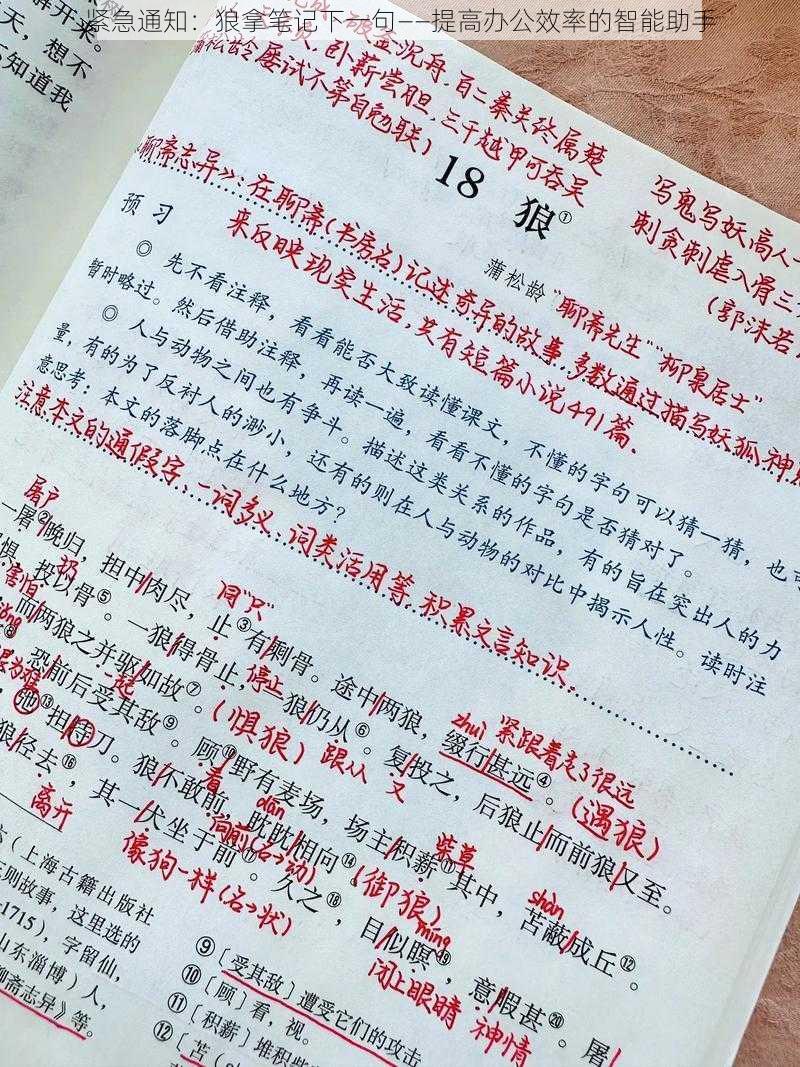 紧急通知：狼拿笔记下一句——提高办公效率的智能助手
开来。
天，想不
知道我
金沉舟，百二秦关终属楚
蒲松龄屡试不第自勉联）卧薪尝胆，三千越甲可吞吴
18 狼①
写鬼写妖高人一
刺贪刺虐入骨三
（郭沫若
蒲松龄 "聊斋先生" "柳泉居士"
聊斋志异》：在聊斋（书房名）记述奇异的故事，多数通过描写妖狐神
来反映现实生活，共有短篇小说491篇。
预习
◎ 先不看注释，看看能否大致读懂课文，不懂的字句可以猜一猜，也可
暂时略过。然后借助注释，再读一遍，看看不懂的字句是否猜对了。
◎ 人与动物之间也有争斗。描述这类关系的作品，有的旨在突出人的力
量，有的为了反衬人的渺小，还有的则在人与动物的对比中揭示人性。读时注
意思考：本文的落脚点在什么地方？
注意本文的通假字、一词多义、词类活用等，积累文言知识。
屠户
同"只"
zhuì 紧跟着走了很远
一屠②晚归，担中/肉尽，止③有/剩骨。途中/两狼，缀行/甚远④。（遇狼）
害怕 扔
停止
惧，投以骨⑤。一狼/得骨/止，一狼/仍从⑥。复/投之，后狼止/而前狼/又至。
一起
（惧狼） 跟从 又
而两狼之并驱/如故⑦。
看
柴草
shàn
恐前后受其敌⑨。顾⑩/野有麦场，场主/积薪⑪其中，苫蔽/成丘⑫。
dān
向前（名→动）
弛⑬担持刀。狼/不敢前，眈眈/相向⑭。（御狼）
离开
像狗一样（名→状）
míng
闭上眼睛 神情
狼/径去⑯，其一/犬坐于前⑰。久之⑱，目/似瞑⑲，意/暇甚⑳。屠
（上海古籍出版社
则故事，这里选的
1715），字留仙，
山东淄博）人，
聊斋志异》等。
⑨〔受其敌〕遭受它们的攻击
⑩〔顾〕看，视。
⑪〔积薪〕堆积柴
⑫〔苫（